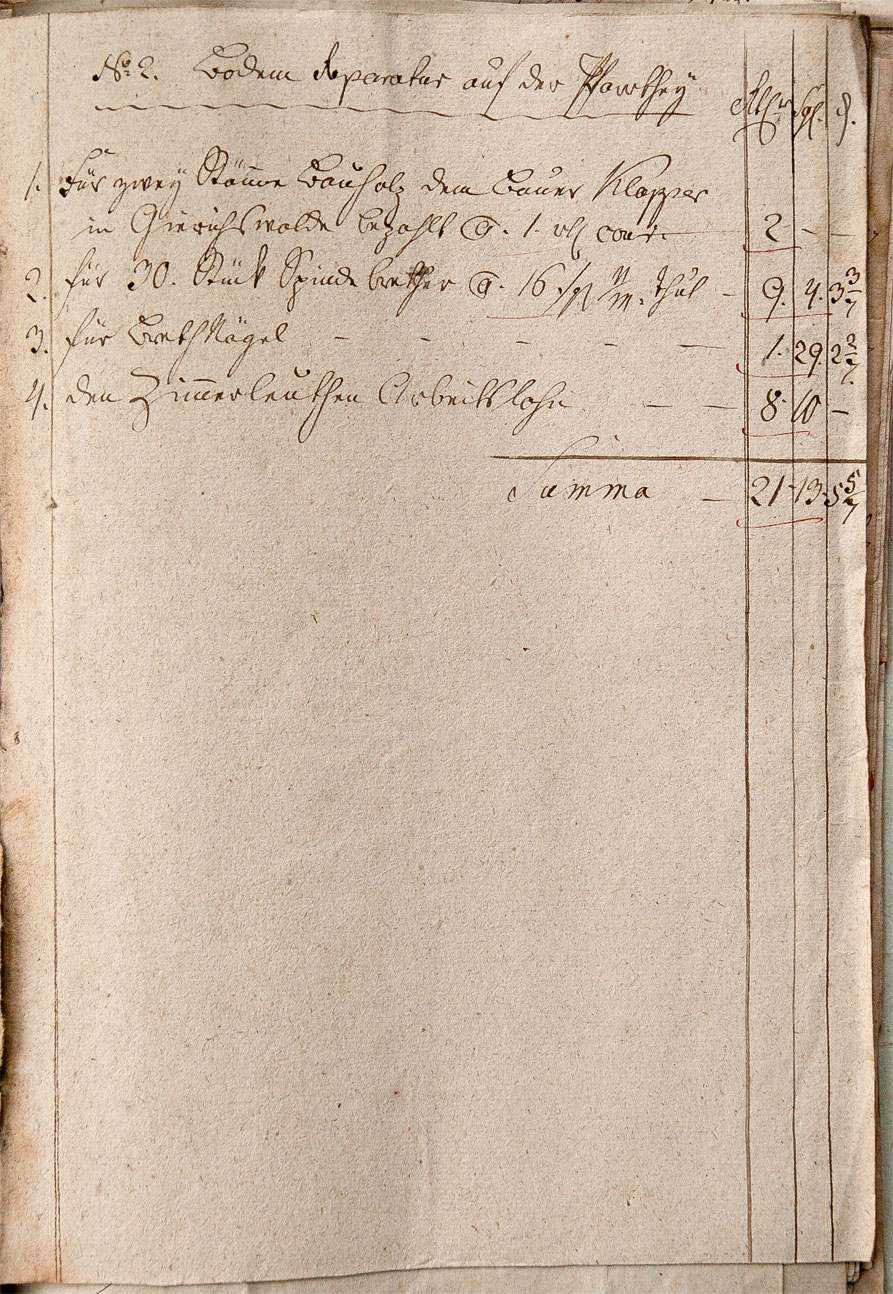 No 2. Bodem Reparatur auf der Pfarrthey
Rthlr Sgl. d.
1. Für zwey Stämme Bauholz dem Bauer Klapper
in Gierichswalde bezahlt a. 1. rtl cour. 2 — —
2. für 30. Stück Spinde bretter a. 16 9. 4. 3 3/7
3. für BrethNägel — — — — — 1. 29. 2 2/7.
4. den Zimmerleuthen Arbeitslohn — — 8. 10 —
Summa — 21. 13. 5 5/7